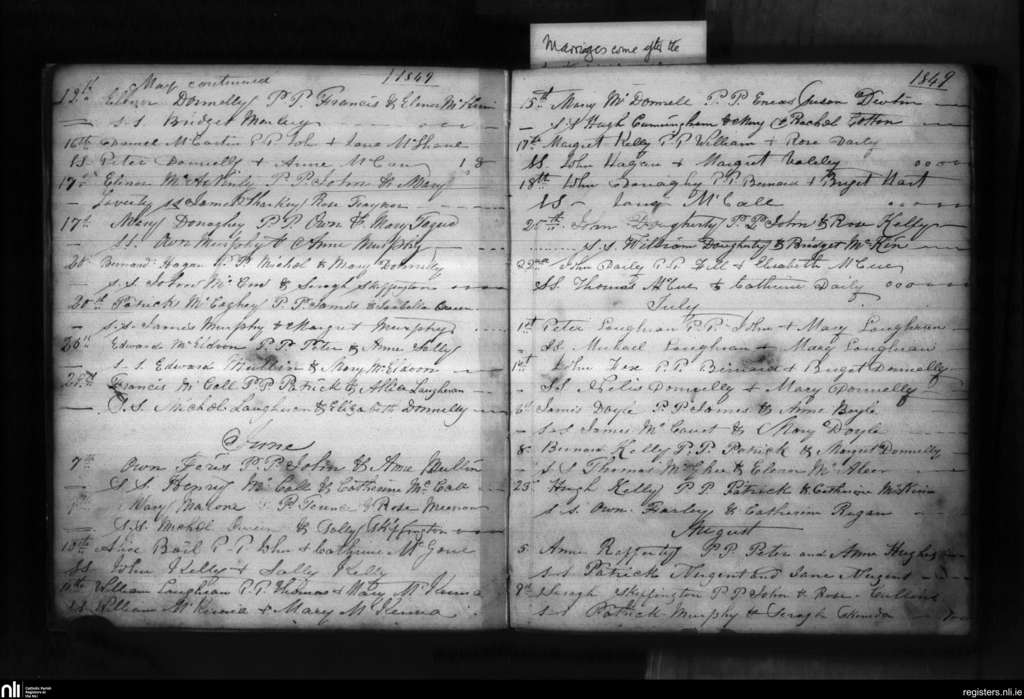 Marriages come after the
May continued 1849
12th Elenor Donnelly P.P. Francis & Elenor
s.s. Bridget
16th Daniel McCartin P.P. John & Jane McShane
ss Peter Donnelly & Anne McCann
17th Elenor P.P. John & Mary
ss James Sharkey Rose Traynor
17th Mary Donaghey P.P. Own & Mary Tague
s.s. Own Murphy & Anne Murphy
20th Bernard Hagan P.P. Michel & Mary Donnelly
s.s. John & Seragh Skeffington
20th Patrick McCaghey P.P. James & Isabella
s.s. James Murphy & Margret Murphy
20th Edward P.P. Peter & Anne
s.s. Edward Mullin & Mary
26th Francis McCall P.P. Patrick & Loughran
S.S. Michel Loughran & Elizabeth Donnelly
June
7th Own P.P. John & Anne Mullin
s.s. Henry McCall & Catherine McCall
Mary Malone P.P. & Rose
s.s. Michel & Sally Skiffington
10th Alice P.P. John & Cathrine
ss John Kelly & Sally Kelly
William Loughran P.P. Thomas & Mary McKenna
ss William McKenna & Mary McKenna
1849
15th Mary McDonnell P.P. Eneas Susan Devlin
s.s Hugh Cunningham & Mary Rachel Cotton
17th Margret Kelly P.P. William & Rose Daily
SS John Hagan & Margret
18th John Donaghy P.P. Bernard & Briget Hart
ss Jane McCall
20th John Dougherty P.P. John & Rose Kelly
s.s. William Dougherty & Bridget
22nd John Daily P.P. & Elisabeth McCue
SS Thomas McCue & Catherine Daily
July
1st Peter Loughran P.P. John & Mary Loughran
ss Michael Loughran & Mary Loughran
1st John Fox P.P. Bernard & Briget Donnelly
SS Donnelly & Mary Donnelly
6th James Doyle P.P. James & Anne Boyle
s.s James & Mary Doyle
8th Bernard Kelly P.P. Patrick & Margret Donnelly
s.s Thomas & Elenor McAleer
23rd Hugh Kelly P.P. Patrick & Catherine
s.s. Own Farley & Catherine Regan
August
5 Anne Rafferty P.P. Peter and Anne Hughes
s.s Patrick Nugent and Jane Nugent
9th Seragh Skeffington P.P. John & Rose Cullins
s.s Patrick Murphy & Seragh
nli
Catholic Parish
Registers at
the NLI
registers.nli.ie